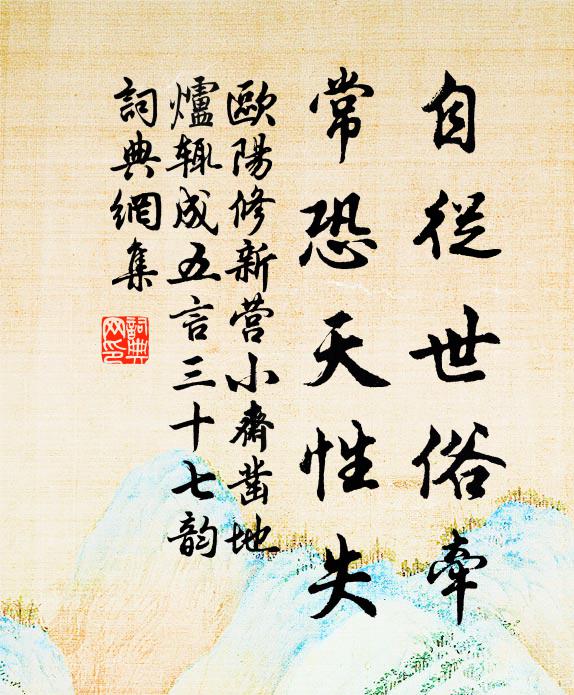 自從世俗牽
常恐天性失
歐陽修新营小齋凿地
爐辄成五言三十七韵
詞典網集
詞典网印